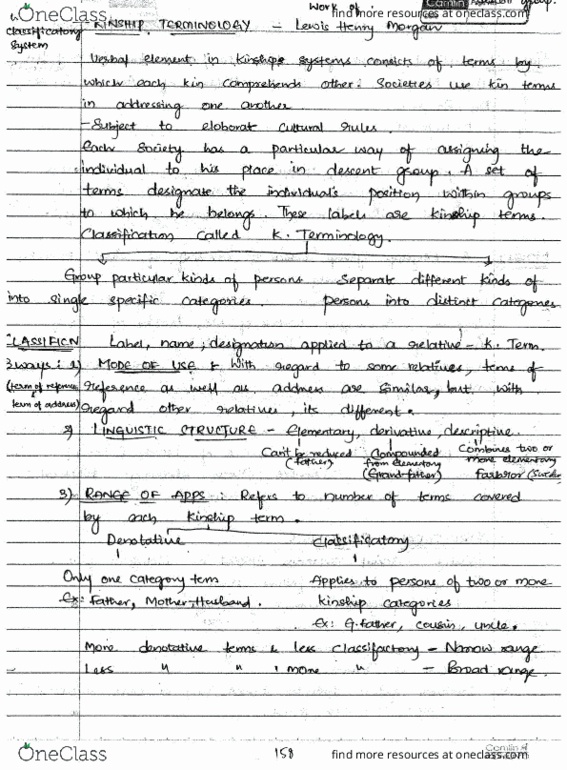 OneClass
find more resources at oneclass.com
Work of
group.
Camlin
classificatory
system
KINSHIP TERMINOLOGY - Lewis Henry Morgan
Verbal element in kinship systems consists of terms by
which each kin comprehends other. Societies use kin terms
in addressing one another
- Subject to eloborate cultural rules.
Each society has a particular way of assigning the
individual to his place in descent group. A set of
terms designate the individual's position within groups
to which he belongs. These labels are kinship terms.
Classification called K. Terminology.
Group particular kinds of persons
into single specific categories.
Separate different kinds of
persons into distinct categories
CLASSIFICN Label, name, designation applied to a relative - K. Term.
3 ways : 1) MODE OF USE : With regard to some relatives, terms of
(term of reference
term of address)
reference as well as address are similar, but with
regard other relatives, its different.
2) LINGUISTIC STRUCTURE - Elementary, derivative, descriptive.
Can't be reduced
(father)
Compounded
from elementary
(Grandfather)
Combines two or
more elementary
Farbror
3) RANGE OF APPS : Refers to number of terms covered
by each kinship term.
Denotative
Classificatory
Only one category term
Ex: Father, Mother, Husband.
Applies to persons of two or more
kinship categories
Ex: G.father, cousin, uncle.
More denotative terms & less classifactory - Narrow range
Less " " , more " - Broad range.
OneClass
158
Camlin
find more resources at oneclass.com